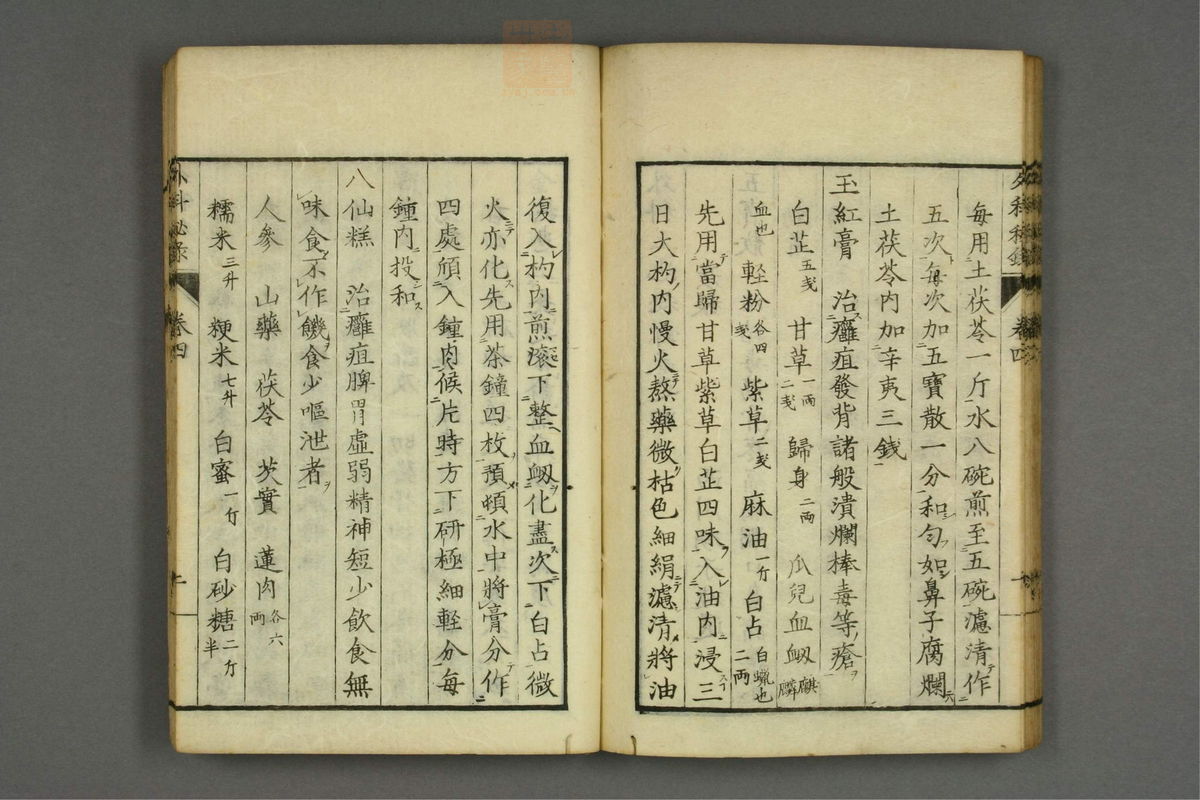 外科秘録 卷四
每用土茯苓一斤水八碗煎至五碗濾清作
五次每次加五寶散一分和勻如鼻子腐爛
土茯苓內加辛夷三錢
玉紅膏 治癰疽發背諸般潰爛棒毒等瘡
白芷五戔 甘草一兩二戔 歸身二兩 瓜兒血衂麒麟
血也 軽粉各四戔 紫草二戔 麻油一斤 白占白蠟也二兩
先用當歸甘草紫草白芷四味入油內浸三
日大杓內慢火熬藥微枯色細絹濾清將油
復入杓內煎滾下整血衂化盡次下白占微
火亦化先用茶鐘四枚預頓水中將膏分作
四處頎入鐘內候片時方下研極細軽分每
鐘內投和
八仙糕 治癰疽脾胃虛弱精神短少飲食無
味食不作饑食少嘔泄者
人參 山藥 茯苓 芡實 蓮肉各六兩
糯米三升 粳米七升 白蜜一斤 白砂糖二斤半
外科秘录 卷四